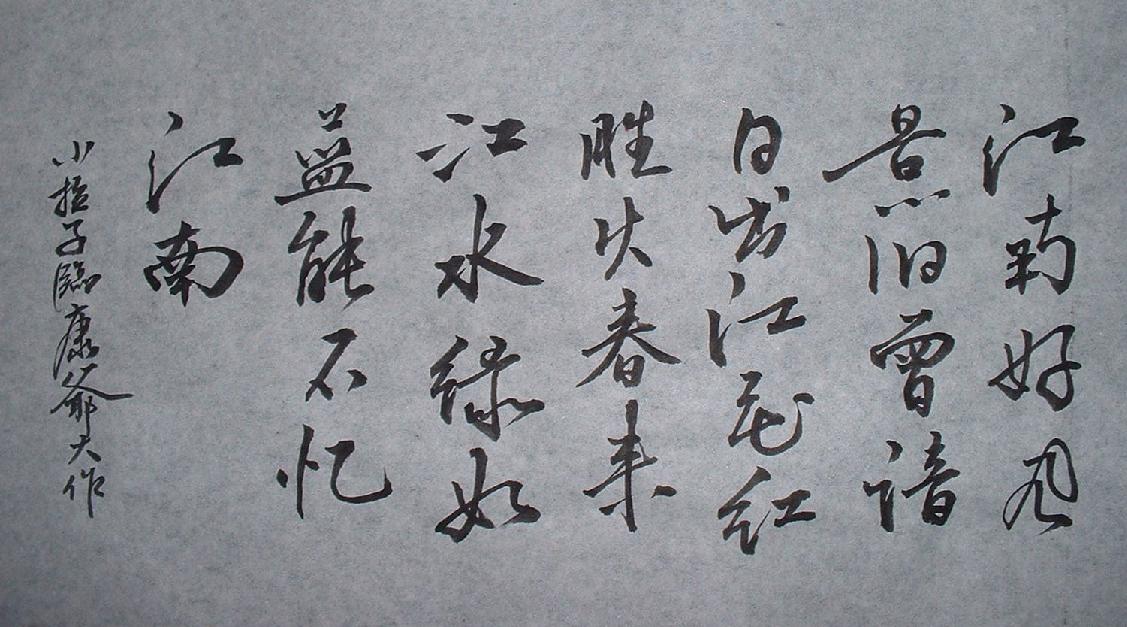 江南好风
景旧曾谙
日出江花红
胜火春来
江水绿如
蓝能不忆
江南
小指子臨康爺大作